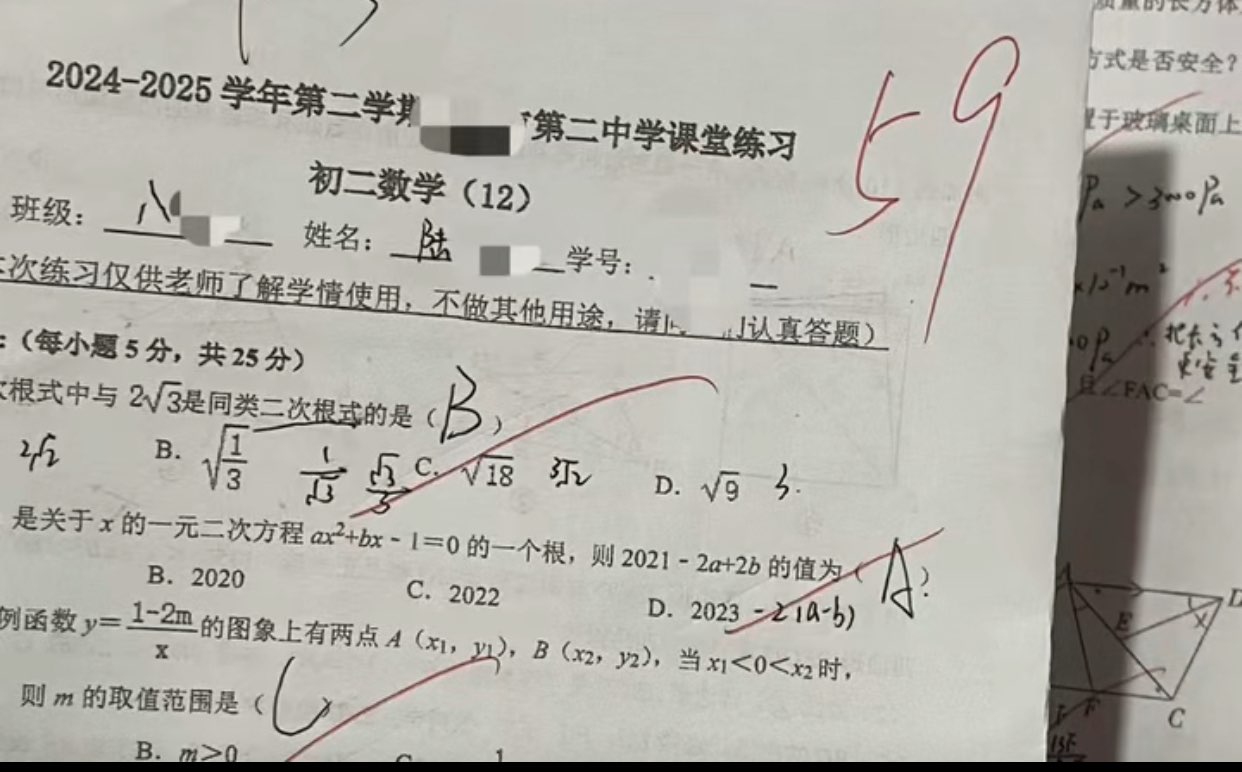 2024-2025 学年第二学期 第二中学课堂练习
59
初二数学（12）
班级： 八 姓名： 陆 学号：
次练习仅供老师了解学情使用，不做其他用途，请 认真答题）
：（每小题 5 分，共 25 分）
次根式中与 2√3是同类二次根式的是（ B ）
2√2 B. √(1/3) 1/√3 √3/3 C. √18 3√2 D. √9 3.
是关于 x 的一元二次方程 ax²+bx－1＝0 的一个根，则 2021－2a+2b 的值为（ A ）
B. 2020 C. 2022 D. 2023 -2(a-b)
例函数 y＝(1-2m)/x 的图象上有两点 A（x₁，y₁），B（x₂，y₂），当 x₁＜0＜x₂ 时，
则 m 的取值范围是（ C ）
B. m＞0
质量的长方体
方式是否安全？
置于玻璃桌面上
Pa > 3000Pa
x10⁻¹m²
且∠FAC=∠
A
D
E
F
C